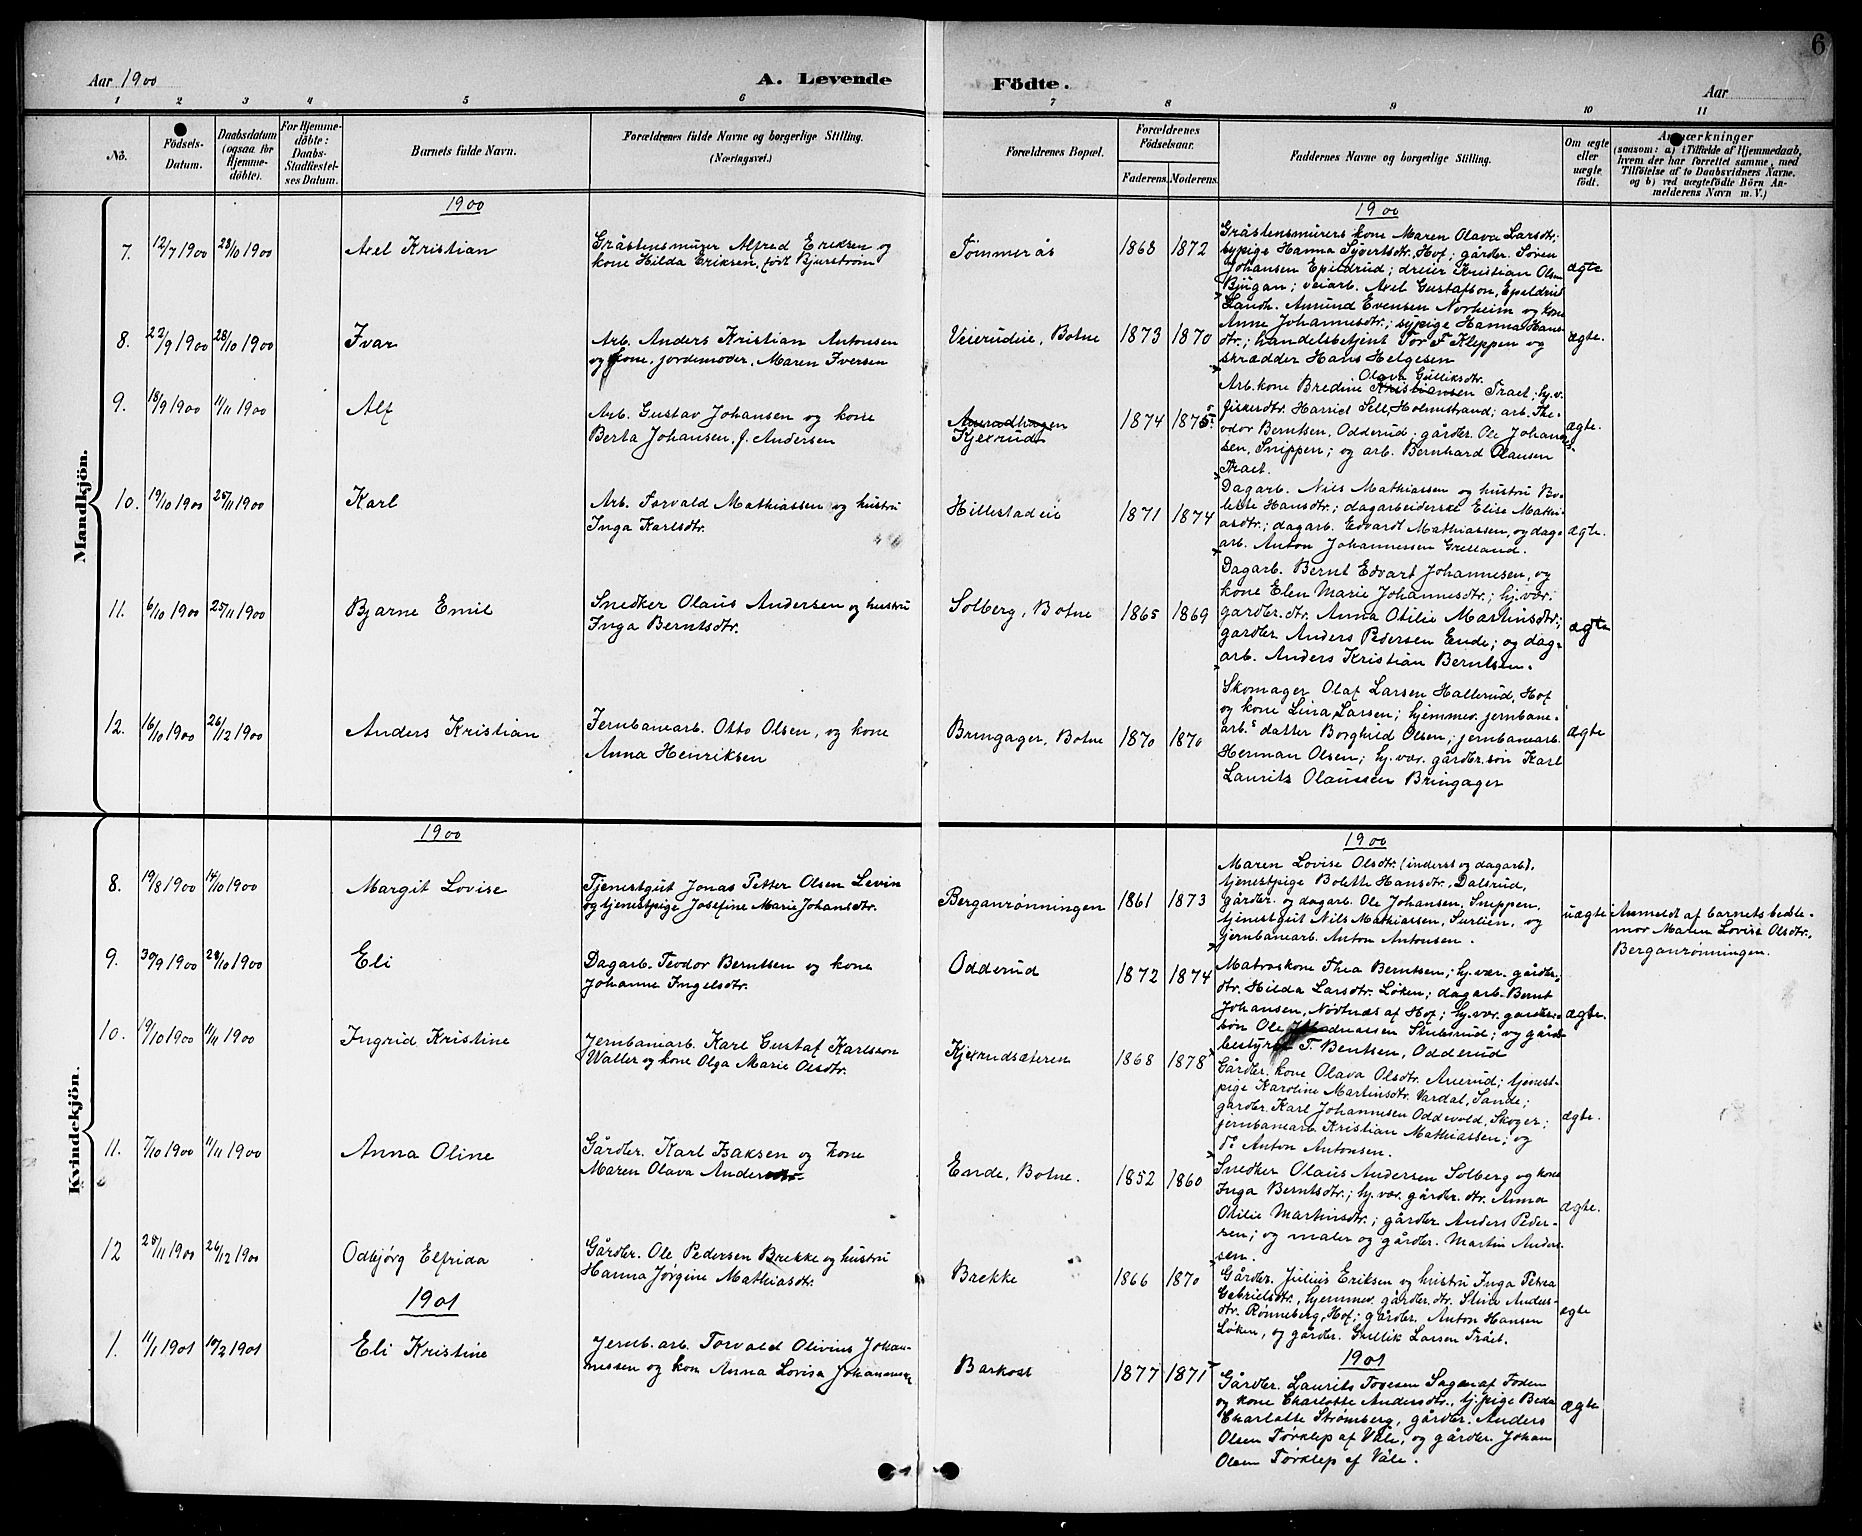 6
Aar 1900
A. Levende Födte.
Aar
1 2 3 4 5 6 7 8 9 10 11
No.
Födsels-Datum.
Daabsdatum (ogsaa for Hjemme-döbte).
For Hjemme-döbte: Daabs-Stadfæstel-ses Datum.
Barnets fulde Navn.
Forældrenes fulde Navne og borgerlige Stilling. (Næringsvei.)
Forældrenes Bopæl.
Forældrenes Födselsaar.
Faderens. Moderens.
Faddernes Navne og borgerlige Stilling.
Om ægte eller uægte födt.
Anmærkninger
(saasom: a) i Tilfælde af Hjemmedaab, hvem der har forrettet samme, med Tilföielse af to Daabsvidners Navne. og b) ved uægtefödte Börn An-melderens Navn m. V.)
Mandkjön.
1900
1900
7. 12/7 1900 28/10 1900 Axel Kristian
Gråstensmurer Alfred Eriksen og
kone Hilda Eriksen, født Bjurstrøm
Tømmerås 1868 1872
Gråstensmurers kone Maren Olava Larsdtr;
sypige Hanna Syvertsdtr. Hof; gårdbr. Søren
Johansen Epildrud; dreier Kristian Olsen
Bjugan; veiarb. Axel Gustafson, Epeldrud
ægte
8. 22/9 1900 28/10 1900 Ivar
Arb. Anders Kristian Antonsen
og kone, jordemoder, Maren Iversen
Veierudeie, Botne 1873 1870
Landh. Amund Evensen Norheim og kone
Anne Johannesdtr.; sypige Hanna Hans-
dtr.; handelsbetjent Tor F. Kleppen og
skrædder Hans Helgesen
ægte.
9. 18/9 1900 11/11 1900 Alf
Arb. Gustav Johansen og kone
Berta Johansen, f. Andersen
Kjexrud 1874 1875
Olava Gulliksdtr.
Arb. kone Bredine Kristiansen Traet; hj.v.
fiskerdtr. Harriet Sell, Holmestrand; arb. The-
odor Berntsen, Odderud; gårdbr. Ole Johan-
sen, Snippen; og arb. Bernhard Olausen
Traet.
ægte.
10. 19/10 1900 25/11 1900 Karl
Arb. Torvald Mathiassen og hustru
Inga Karlsdtr.
Hillestadeie 1871 1874
Dagarb. Nils Mathiassen og hustru Bo-
lette Hansdtr.; dagarbeiderske Elise Mathi-
asdtr.; dagarb. Edvardt Mathiassen, og dag-
arb. Anton Johannessen Grelland.
ægte.
11. 6/10 1900 25/11 1900 Bjarne Emil
Snedker Olaus Andersen og hustru
Inga Berntsdtr.
Solberg, Botne 1865 1869
Dagarb. Bernt Edvart Johannesen, og
kone Elen Marie Johannesdtr.; hj.vær.
gårdbr. dtr. Anna Otilie Martinsdtr;
gårdbr Anders Pedersen Ende; og dag-
arb. Anders Kristian Berntsen.
ægte
12. 16/10 1900 26/12 1900 Anders Kristian
Jernbanearb. Otto Olsen, og kone
Anna Henriksen
Bringager, Botne 1870 1870
Skomager Olaf Larsen Hallerud, Hof
og kone Lina Larsen; hjemmev. jernbane-
arb.s datter Borghild Olsen; jernbanearb.
Herman Olsen; hj.vær. gårdbr. søn Karl
Laurits Olaussen Bringager
ægte
Kvindekjön.
1900
1900
8. 19/8 1900 14/10 1900 Margit Lovise
Tjenestgut Jonas Petter Olsen Levin
og tjenestpige Josefine Marie Johansdtr.
Berganrønningen 1861 1873
Maren Lovise Olsdtr. (inderst og dagarb),
tjenestpige Bolette Hansdtr, Dalsrud,
gårdbr. og dagarb. Ole Johansen, Snippen,
tjenestgut Nils Mathiassen, Surlien, og
jernbanearb. Anton Antonsen.
uægte
Anmeldt af barnets bedste-
mor Maren Lovise Olsdtr.
Berganrønningen.
9. 30/9 1900 28/10 1900 Eli
Dagarb. Teodor Berntsen og kone
Johanne Ingelsdtr.
Odderud 1872 1874
Matroskone Thea Berntsen; hj.vær. gårdbr.
dtr. Hilda Larsdtr. Løken; dagarb. Bernt
Johansen, Nødtnæs af Hof; hj.vær. gårdbr.
søn Ole Stubsrud; og gårds-
bestyrer T. Bentsen, Odderud
ægte.
10. 19/10 1900 11/11 1900 Ingrid Kristine
Jernbanearb. Karl Gustaf Karlsson
Waller og kone Olga Marie Olsdtr.
Kjexrudsæteren 1868 1878
Gårdbr. kone Olava Olsdtr. Auerud; tjenest-
pige Karoline Martinsdtr. Vardal, Sande;
gårdbr. Karl Johannesen Oddevold, Skoger;
jernbanearb. Kristian Mathiassen; og
Do Anton Antonsen.
ægte.
11. 7/10 1900 11/11 1900 Anna Oline
Gårdbr. Karl Isaksen og kone
Maren Olava Andersdtr.
Ende, Botne. 1852 1860
Snedker Olaus Andersen Solberg og kone
Inga Berntsdtr.; hj.vær. gårdbr. dtr. Anna
Otilie Martinsdtr.; gårdbr Anders Peder-
sen; og maler og gårdbr. Martin Ander-
sen.
ægte.
12 25/11 1900 26/12 1900 Odbjørg Elfrida
Gårdbr. Ole Pedersen Brekke og hustru
Hanna Jørgine Mathiasdtr.
Brekke 1866 1870
Gårdbr. Julius Eriksen og hustru Inga Petrea
Gabrielsdtr., hjemmev. gårdbr. dtr. Stina Anders-
dtr. Rønneberg, Hof; gårdbr. Anton Hansen
Løken, og gårdbr. Gullik Larsen Trået.
ægte
1901
1901
1. 11/1 1901 10/2 1901 Eli Kristine
Jernb. arb. Torvald Olivius Johan-
nessen og kone Anna Lovisa Johannesen
Barkost 1877 1871
Gårdbr. Laurits Tovesen Sagen af Foden
og kone Charlotte Andersdtr., tj.pige Beda
Charlotte Strømberg, gårdbr. Anders
Olsen Tørklep af Våle, og gårdbr. Johan
Olsen Tørklep af Våle.
ægte